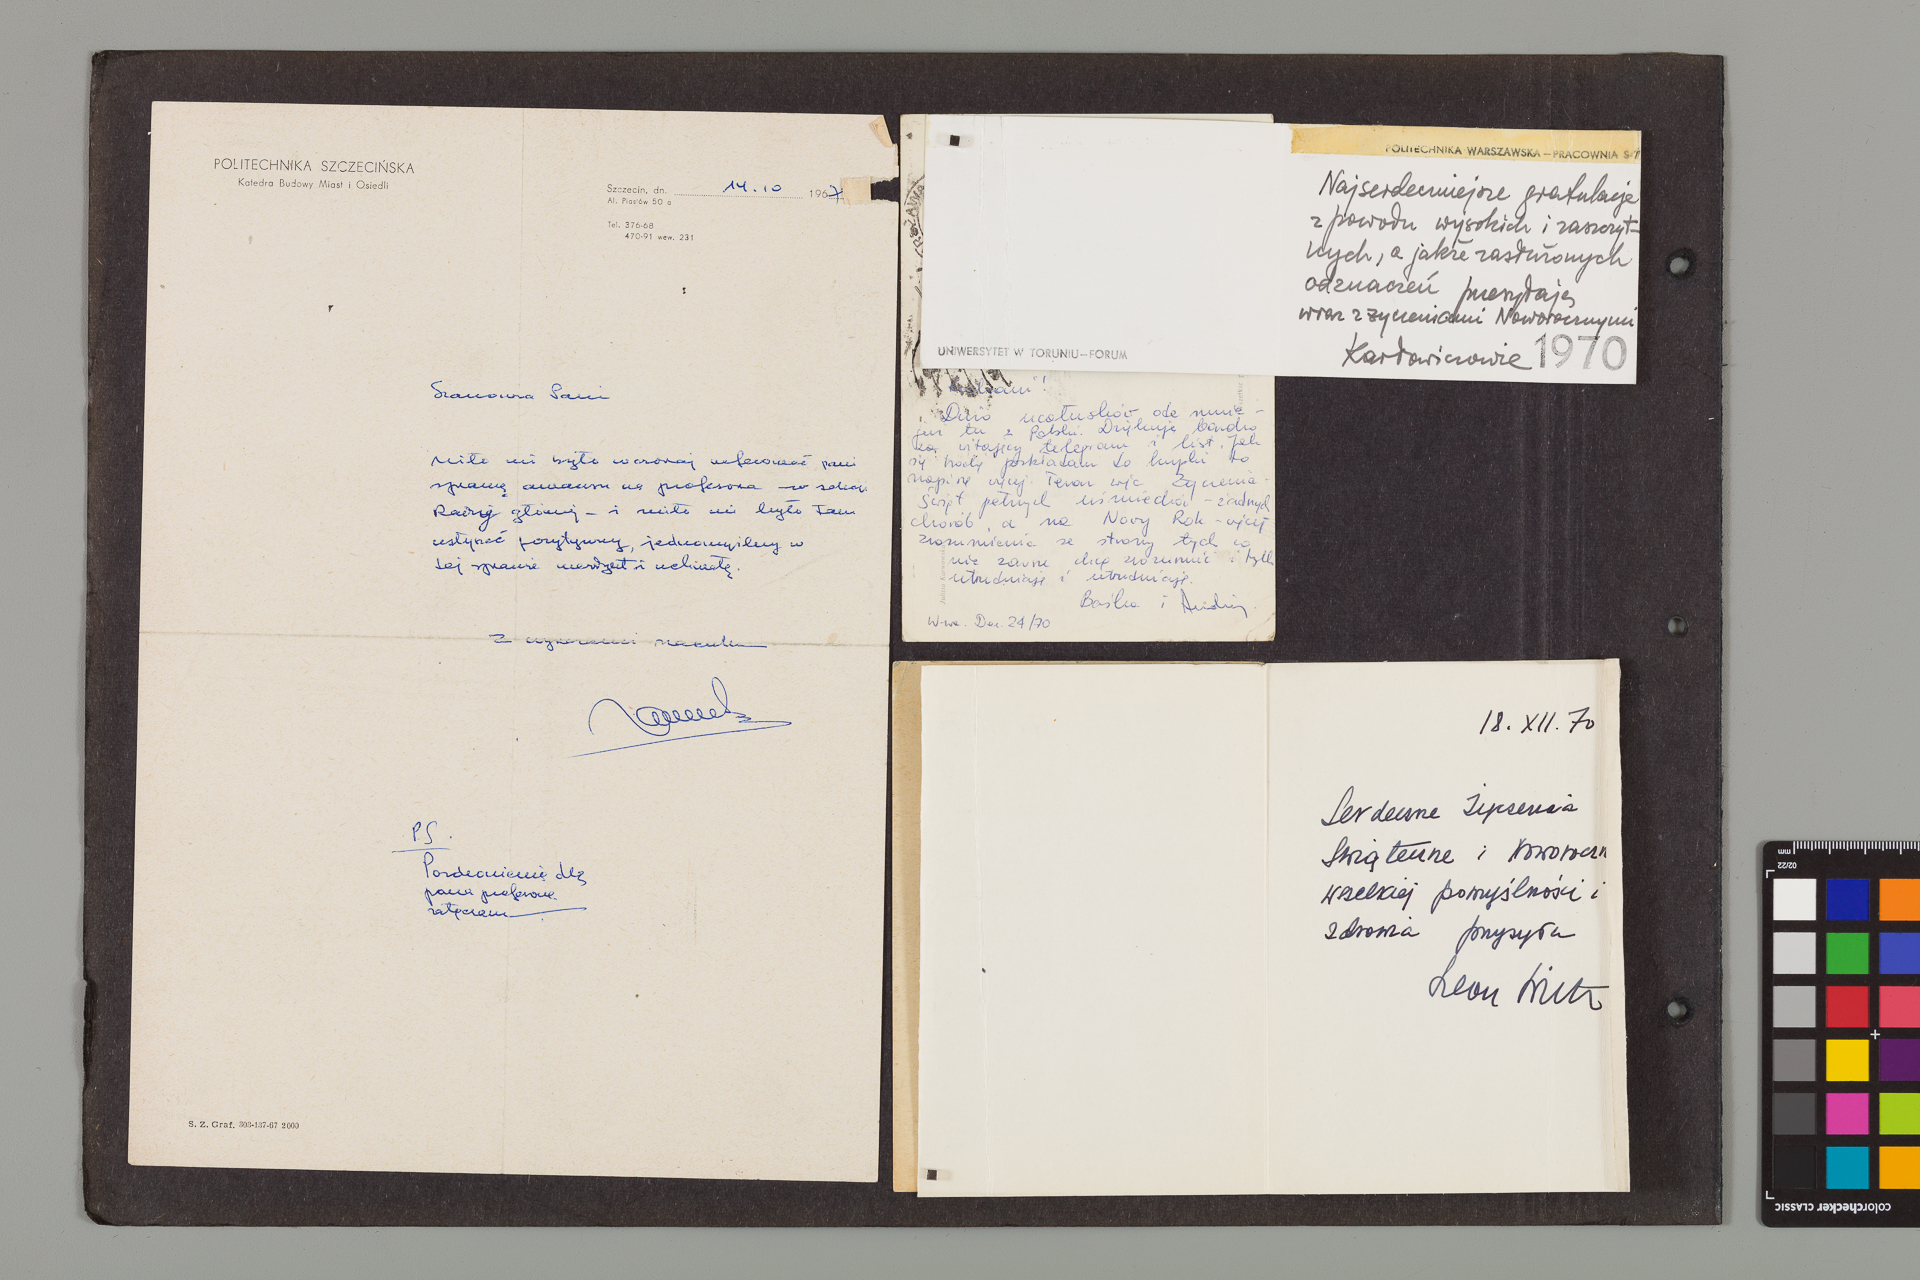 POLITECHNIKA SZCZECIŃSKA
Katedra Budowy Miast i Osiedli
Szczecin, dn. 14.10 1967
Al. Piastów 50 a
Tel. 376-68
470-91 wew. 231
Szanowna Pani
Miło mi było wczoraj referować pani
sprawę awansu na profesora – w sekcji
Rady głównej – i miło mi było tam
usłyszeć pozytywny, jednomyślny w
tej sprawie werdykt i uchwałę.
Z wyrazami szacunku
PS.
Pozdrowienia dla
pana profesora
załączam
S. Z. Graf. 303-137-67 2000
POLITECHNIKA WARSZAWSKA – PRACOWNIA
Najserdeczniejsze gratulacje
z powodu wysokich i zaszczyt-
nych, a jakże zasłużonych
odznaczeń przesyłają
wraz z życzeniami Noworocznymi
Karłowiczowie 1970
UNIWERSYTET W TORUNIU – FORUM
Dużo ucałusków ode mnie –
już tu z Polski. Dziękuję bardzo
za witający telegram i list. Jak
się trochę poskładam do kupki to
napiszę więcej. Teraz więc życzenia –
Świąt pełnych uśmiechów – żadnych
chorób, a na Nowy Rok – więcej
zrozumienia ze strony tych co
nie zawsze chcą zrozumieć i tylko
utrudniają i utrudniają.
Baśka i Andrzej
W-wa. Dec. 24/70
18. XII. 70
Serdeczne życzenia
Świąteczne i Noworoczn
wszelkiej pomyślności i
zdrowia przysyła
Leon
mm
02/22
colorchecker CLASSIC